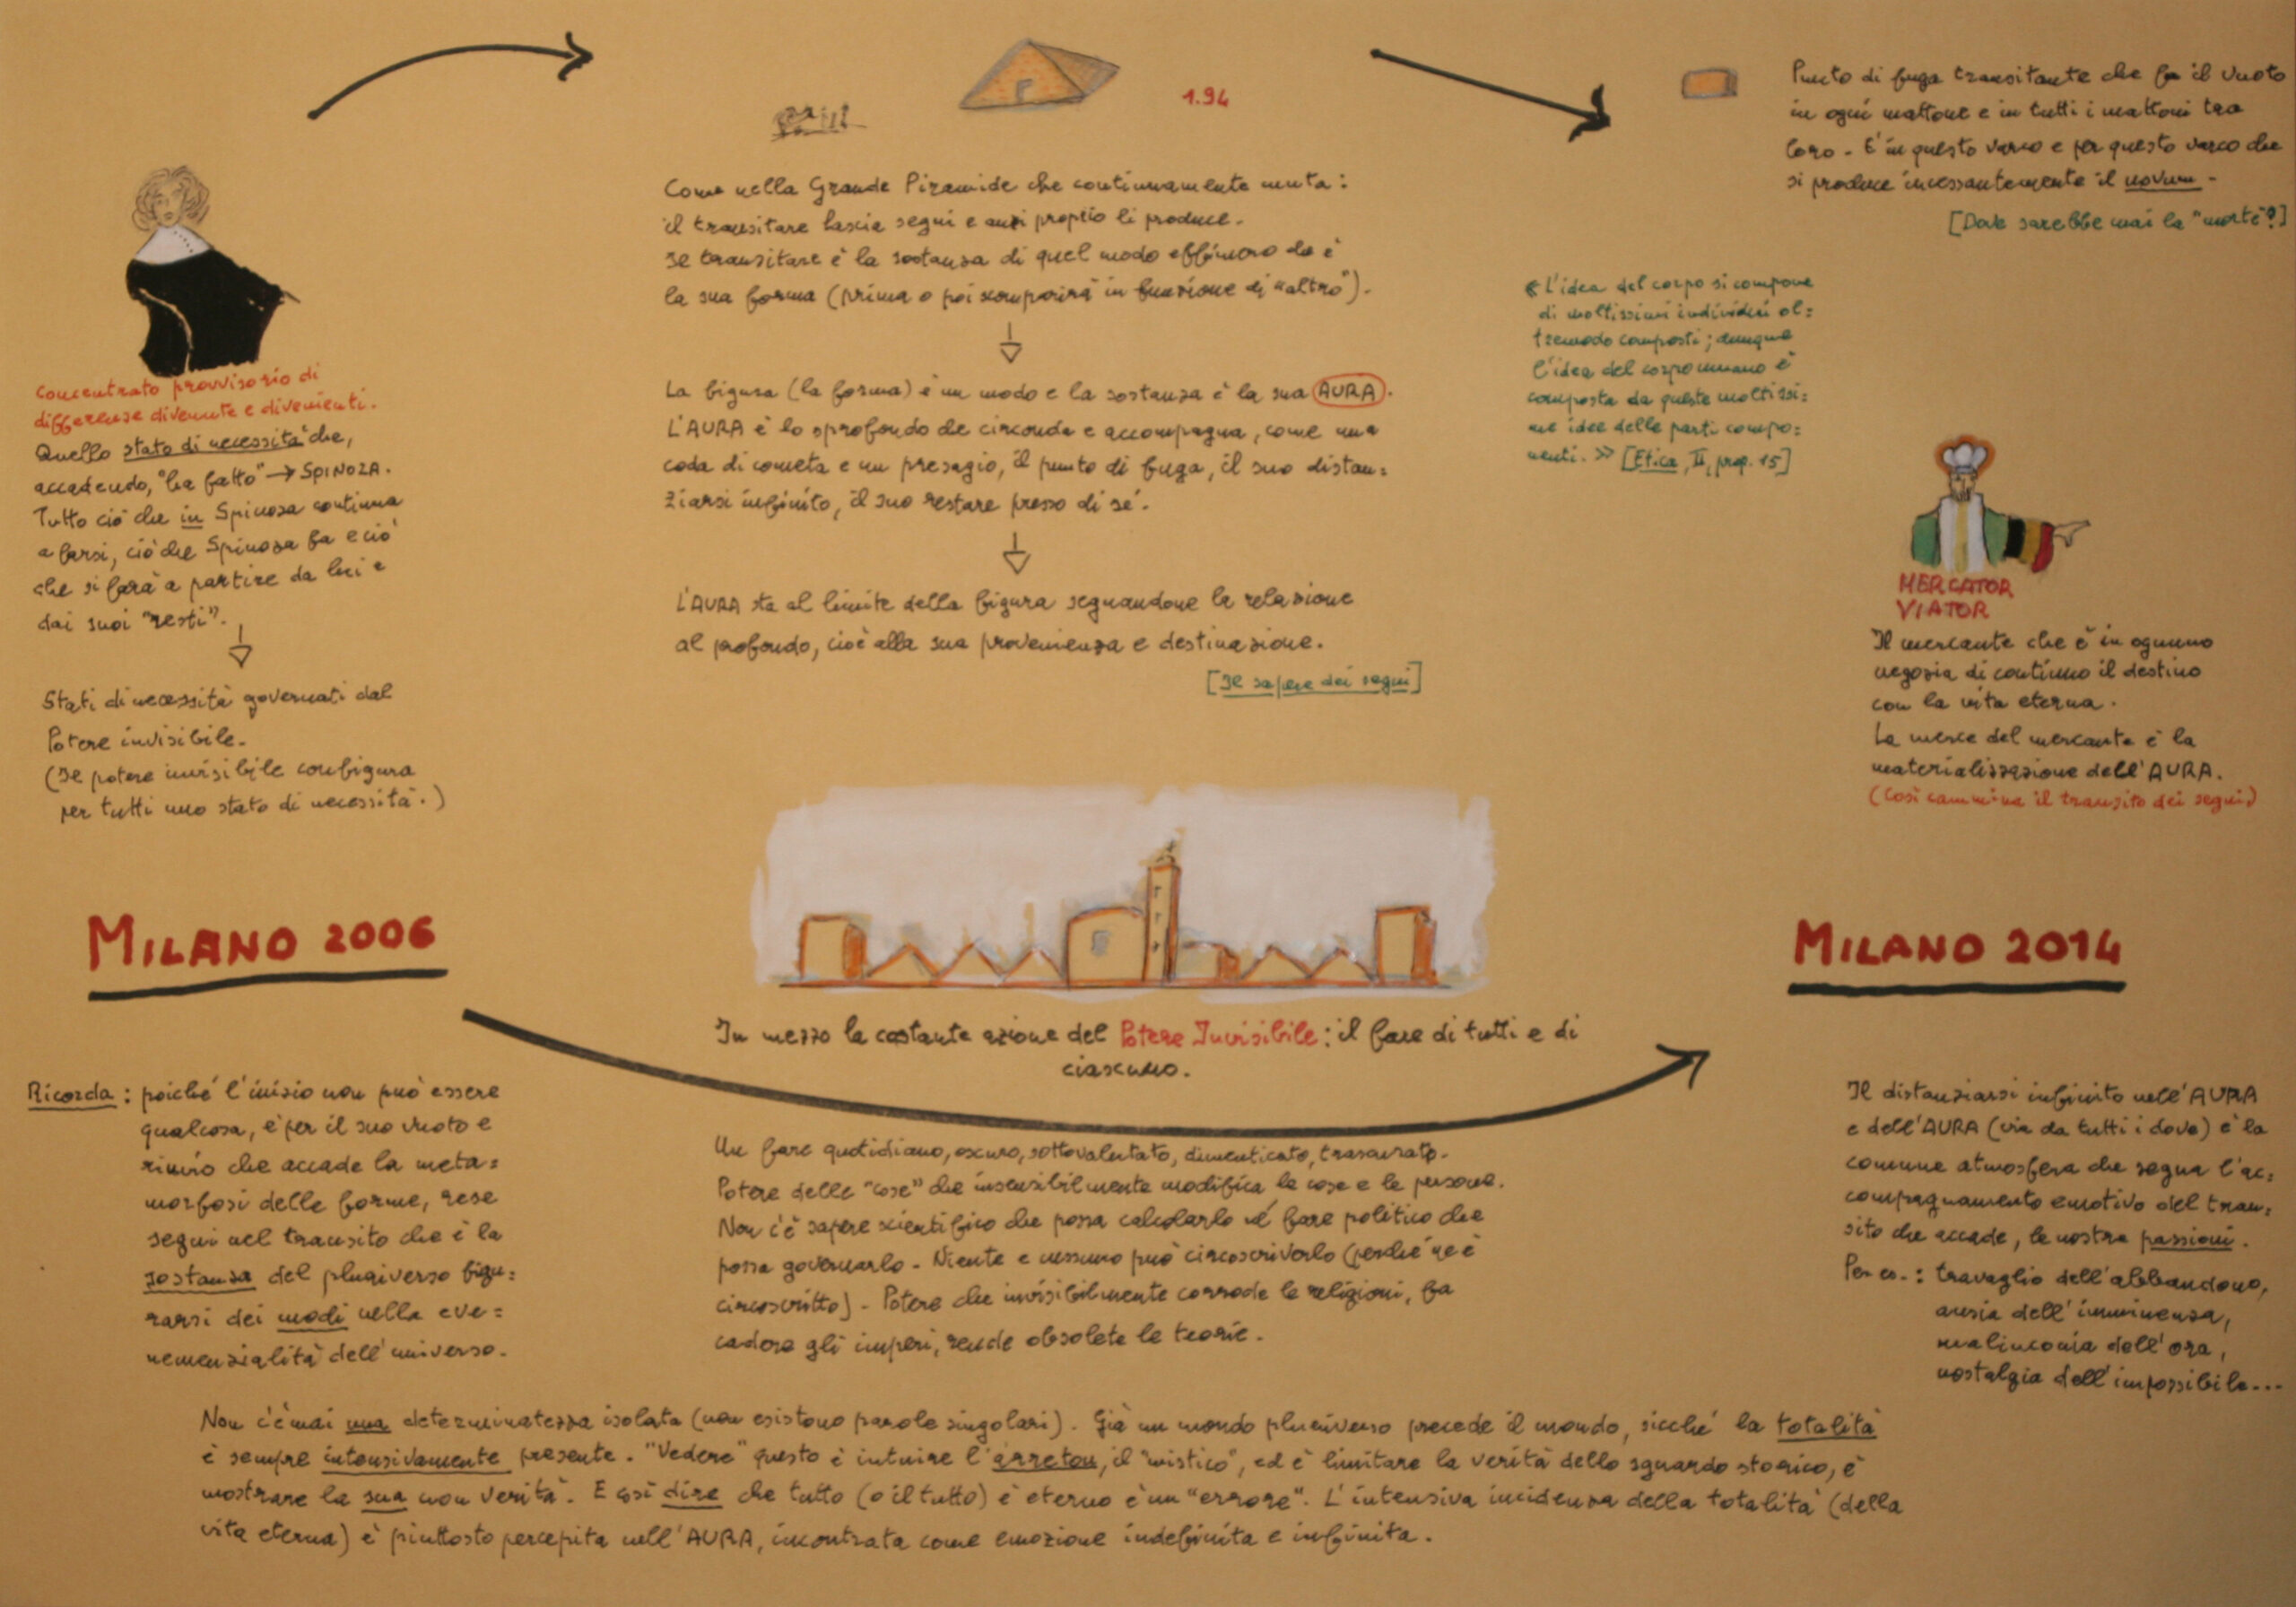 1.94
Come nella Grande Piramide che continuamente muta:
il transitare lascia segni e anzi proprio li produce.
Il transitare è la sostanza di quel modo effimero che è
la sua forma (prima o poi scomparirà in funzione di "altro").
La figura (la forma) è un modo e la sostanza è la sua AURA.
L'AURA è lo sprofondo che circonda e accompagna, come una
coda di cometa e un presagio, il punto di fuga, il suo distan=
ziarsi infinito, il suo restare presso di sé.
L'AURA sta al limite della figura segnandone la relazione
al profondo, cioè alla sua provenienza e destinazione.
[Il sapere dei segni]
Concentrato provvisorio di
differenze divenute e divenienti.
Quello stato di necessità che,
accadendo, "ha fatto" → SPINOZA.
Tutto ciò che in Spinoza continua
a farsi, ciò che Spinoza fa e ciò
che si farà a partire da lui e
dai suoi "resti".
Stati di necessità governati dal
Potere invisibile.
(Il potere invisibile configura
per tutti uno stato di necessità.)
Punto di fuga transitante che fa il vuoto
in ogni mattone e in tutti i mattoni tra
loro - E' in questo varco e per questo varco che
si produce incessantemente il novum -
[Dove sarebbe mai la "morte"?]
« L'idea del corpo si compone
di moltissimi individui ol=
tremodo composti; dunque
l'idea del corpo umano è
composta da queste moltissi=
me idee delle parti compo=
nenti. » [Etica, II, prop. 15]
MERCATOR
VIATOR
Il mercante che è in ognuno
negozia di continuo il destino
con la vita eterna.
La merce del mercante è la
materializzazione dell'AURA.
(Così cammina il transito dei segni)
MILANO 2006
MILANO 2014
In mezzo la costante azione del Potere Invisibile: il fare di tutti e di
ciascuno.
Ricorda: poiché l'inizio non può essere
qualcosa, è per il suo vuoto e
rinvio che accade la meta=
morfosi delle forme, rese
segni nel transito che è la
sostanza del pluriverso figu=
rarsi dei modi nella eve=
nemenzialità dell'universo.
Un fare quotidiano, oscuro, sottovalutato, dimenticato, trascurato.
Potere delle "cose" che insensibilmente modifica le cose e le persone.
Non c'è sapere scientifico che possa calcolarlo né fare politico che
possa governarlo - Niente e nessuno può circoscriverlo (perché ne è
circoscritto) - Potere che invisibilmente corrode le religioni, fa
cadere gli imperi, rende obsolete le teorie.
Il distanziarsi infinito nell'AURA
e dell'AURA (via da tutti i dove) è la
comune atmosfera che segna l'ac=
compagnamento emotivo del tran=
sito che accade, le nostre passioni.
Per es.: travaglio dell'abbandono,
ansia dell'imminenza,
malinconia dell'ora,
nostalgia dell'impossibile...
Non c'è mai una determinatezza isolata (non esistono parole singolari). Già un mondo pluriverso precede il mondo, sicché la totalità
è sempre intensivamente presente. "Vedere" questo è intuire l'àrreton, il "mistico", ed è limitare la verità dello sguardo storico, è
mostrare la sua non verità. E così dire che tutto (o il tutto) è eterno è un "errore". L'intensiva incidenza della totalità (della
vita eterna) è piuttosto percepita nell'AURA, incontrata come emozione indefinita e infinita.